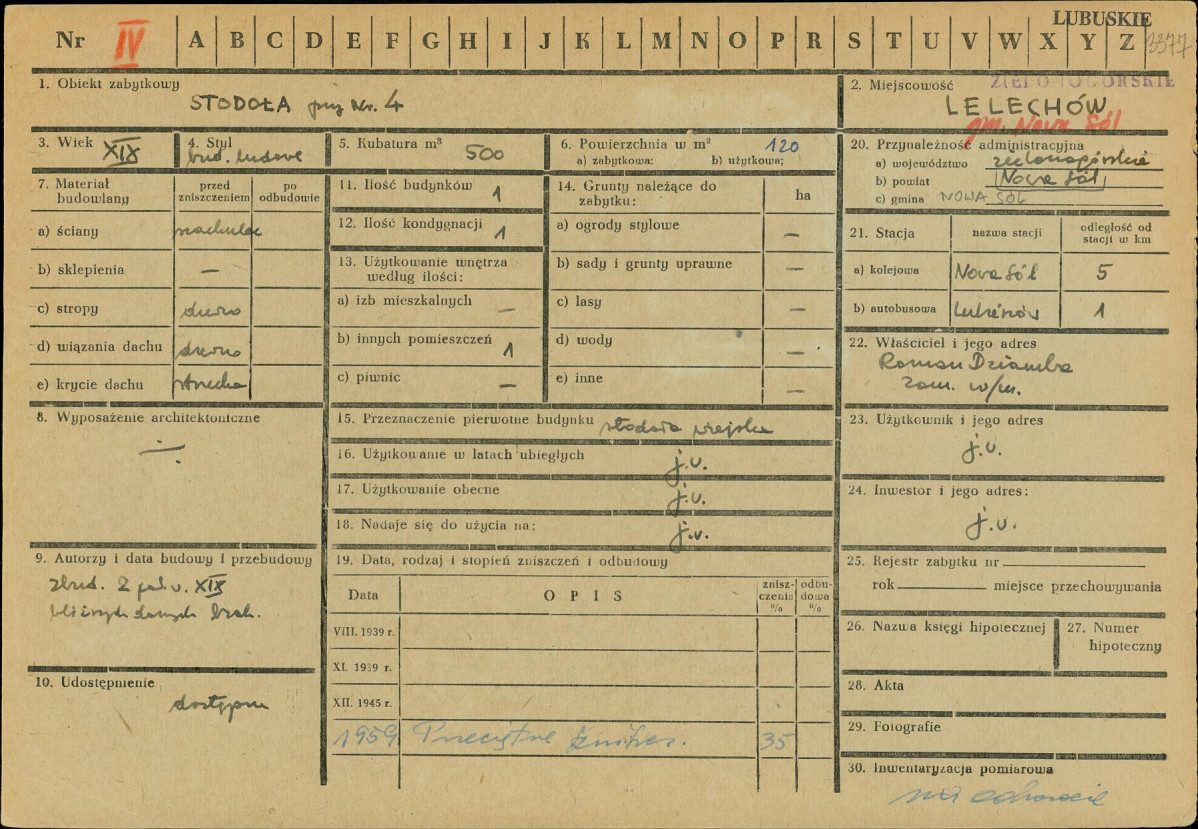 LUBUSKIE
Nr IV A B C D E F G H I J K L M N O P R S T U V W X Y Z 3377
1. Obiekt zabytkowy
STODOŁA przy Nr. 4
2. Miejscowość
ZIELONOGÓRSKIE
LELECHÓW
gm. Nowa Sól
3. Wiek XIX
4. Styl
bud. ludowe
5. Kubatura m³ 500
6. Powierzchnia w m² 120
a) zabytkowa: b) użytkowa:
7. Materiał budowlany
przed zniszczeniem
po odbudowie
a) ściany
b) sklepienia —
c) stropy drewno
d) wiązania dachu drewno
e) krycie dachu strzecha
8. Wyposażenie architektoniczne
9. Autorzy i data budowy i przebudowy
zbud. 2 poł. w. XIX
bliższych danych brak.
10. Udostępnienie
dostępne
11. Ilość budynków 1
12. Ilość kondygnacji 1
13. Użytkowanie wnętrza według ilości:
a) izb mieszkalnych —
b) innych pomieszczeń 1
c) piwnic —
14. Grunty należące do zabytku:
ha
a) ogrody stylowe —
b) sady i grunty uprawne —
c) lasy —
d) wody —
e) inne —
15. Przeznaczenie pierwotne budynku stodoła wiejska
16. Użytkowanie w latach ubiegłych j.w.
17. Użytkowanie obecne j.w.
18. Nadaje się do użycia na: j.w.
19. Data, rodzaj i stopień zniszczeń i odbudowy
Data
OPIS
znisz-
czenia
%
odbu-
dowa
%
VIII. 1939 r.
XI. 1939 r.
XII. 1945 r.
1959 Przeciętne 35
20. Przynależność administracyjna
a) województwo zielonogórskie
b) powiat Nowa Sól
c) gmina NOWA SÓL
21. Stacja
nazwa stacji
odległość od
stacji w km
a) kolejowa Nowa Sól 5
b) autobusowa 1
22. Właściciel i jego adres
Roman Dziamba
zam. w/m.
23. Użytkownik i jego adres
j.w.
24. Inwestor i jego adres:
j.w.
25. Rejestr zabytku nr
rok miejsce przechowywania
26. Nazwa księgi hipotecznej
27. Numer hipoteczny
28. Akta
29. Fotografie
30. Inwentaryzacja pomiarowa
na odwrocie